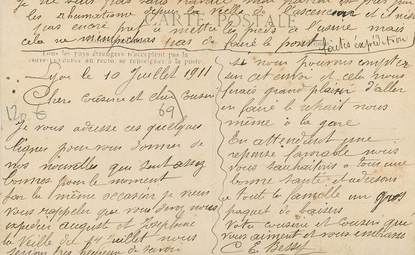 les rhumatisme
encore pas à mettre les pieds à l'usine mais
cela ne m'empechera pas de faire le pont
faites expedition
CARTE POSTALE
Tous les pays étrangers n'acceptent pas la
au recto, se renseigner à la poste
Lyon le 10 Juillet 1911
Chers cousine et cher Cousin
69
Je vous adresse ces quelques
lignes pour vous donner de
nos nouvelles qui sont assez
bonnes pour le moment
par la même occasion je viens
vous rappeler que vous devez nous
expedier august et Josephine
la veille du 14 Juillet nous
serions très
si nous pourrions compter
sur cet envoi et cela nous
ferais grand plaisir d'aller
en faire le retrait nous
même à la gare
En attendant une
reponse favorable nous
vous souhaitons a tous une
bonne santé et adresons
a toute la famille un gros
paquet de baisers
Votre cousine et Cousin que
vous aiment et vous embrasse
C E Besset